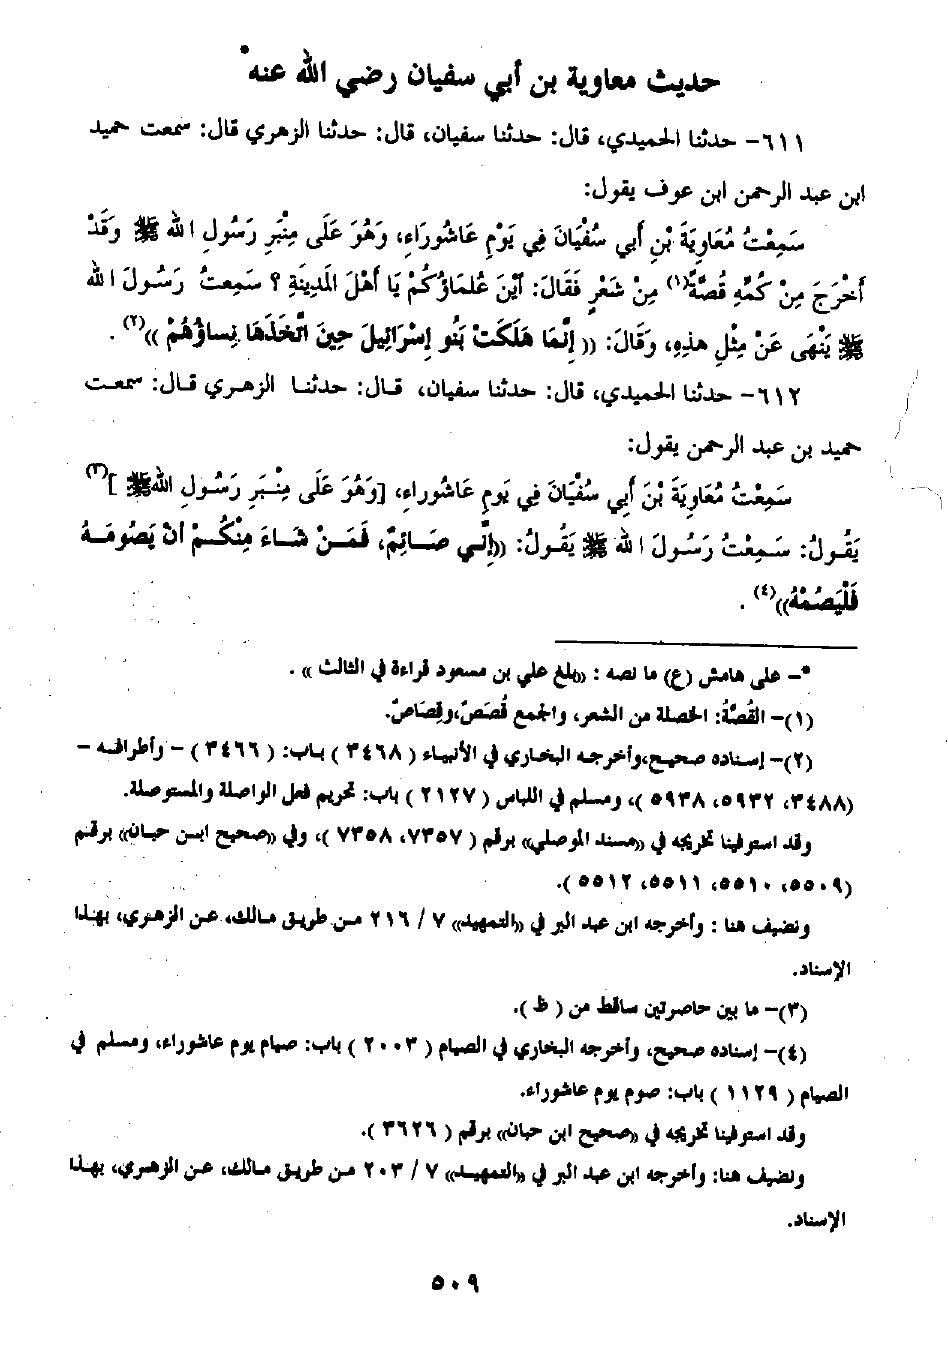 حديث معاوية بن أبي سفيان رضي الله عنه*
٦١١- حدثنا الحميدي، قال: حدثنا سفيان، قال: حدثنا الزهري قال: سمعت حميد
ابن عبد الرحمن ابن عوف يقول:
سَمِعْتُ مُعَاوِيَةَ بْنِ أَبي سُفْيَانَ فِي يَوْمِ عَاشُورَاءِ، وَهُوَ عَلَى مِنْبَرِ رَسُولِ الله ﷺ وَقَدْ
أَخْرَجَ مِنْ كُمِّهِ قُصَّةً(١) مِنْ شَعْرٍ فَقَالَ: أَيْنَ عُلمَاؤُكُمْ يَا أَهْلَ المَدِينَةِ ؟ سَمِعتُ رَسُولَ الله
ﷺ يَنْهَى عَنْ مِثْلِ هذِهِ، وَقَالَ: (( إِنَّمَا هَلَكَتْ بَنُو إِسْرَائِيلَ حِينَ اتَّخَذَهَا نِساؤُهُمْ ))(٢) .
٦١٢- حدثنا الحميدي، قال: حدثنا سفيان، قال: حدثنا الزهري قال: سمعت
حميد بن عبد الرحمن يقول:
سَمِعْتُ مُعَاوِيَةَ بْنَ أَبي سُفْيَانَ فِي يَومِ عَاشُورَاءِ، [وَهُوَ عَلَى مِنْبَرِ رَسُولِ اللهﷺ ](٣)
يَقُولُ: سَمِعْتُ رَسُولَ الله ﷺ يَقُولُ: ((إِنِّي صَائِمٌ، فَمَنْ شَاءَ مِنْكُمْ أَنْ يَصُومَهُ
فَلْيَصُمْهُ))(٤) .
*- على هامش (ع) ما نصه : ((بلغ علي بن مسعود قراءة في الثالث )) .
(١)- القُصَّةُ: الخصلة من الشعر، والجمع قُصَصٌ،وقِصَاصٌ.
(٢)- إسناده صحيح،وأخرجه البخاري في الأنبياء ( ٣٤٦٨ ) باب: ( ٣٤٦٦ ) - وأطرافه -
(٣٤٨٨، ٥٩٣٢، ٥٩٣٨ )، ومسلم في اللباس ( ٢١٢٧ ) باب: تحريم فعل الواصلة والمستوصلة.
وقد استوفينا تخريجه في ((مسند الموصلي)) برقم ( ٧٣٥٧، ٧٣٥٨ )، وفي ((صحيح ابن حبان)) برقم
(٥٥٠٩، ٥٥١٠، ٥٥١١، ٥٥١٢ ).
ونضيف هنا : وأخرجه ابن عبد البر في ((التمهيد)) ٧ / ٢١٦ من طريق مالك، عن الزهري، بهذا
الإسناد.
(٣)- ما بين حاصرتين ساقط من ( ظ ).
(٤)- إسناده صحيح، وأخرجه البخاري في الصيام ( ٢٠٠٣ ) باب: صيام يوم عاشوراء، ومسلم في
الصيام ( ١١٢٩ ) باب: صوم يوم عاشوراء.
وقد استوفينا تخريجه في ((صحيح ابن حبان)) برقم ( ٣٦٢٦ ).
ونضيف هنا: وأخرجه ابن عبد البر في ((التمهيد)) ٧ / ٢٠٣ من طريق مالك، عن الزهري، بهذا
الإسناد.
٥٠٩